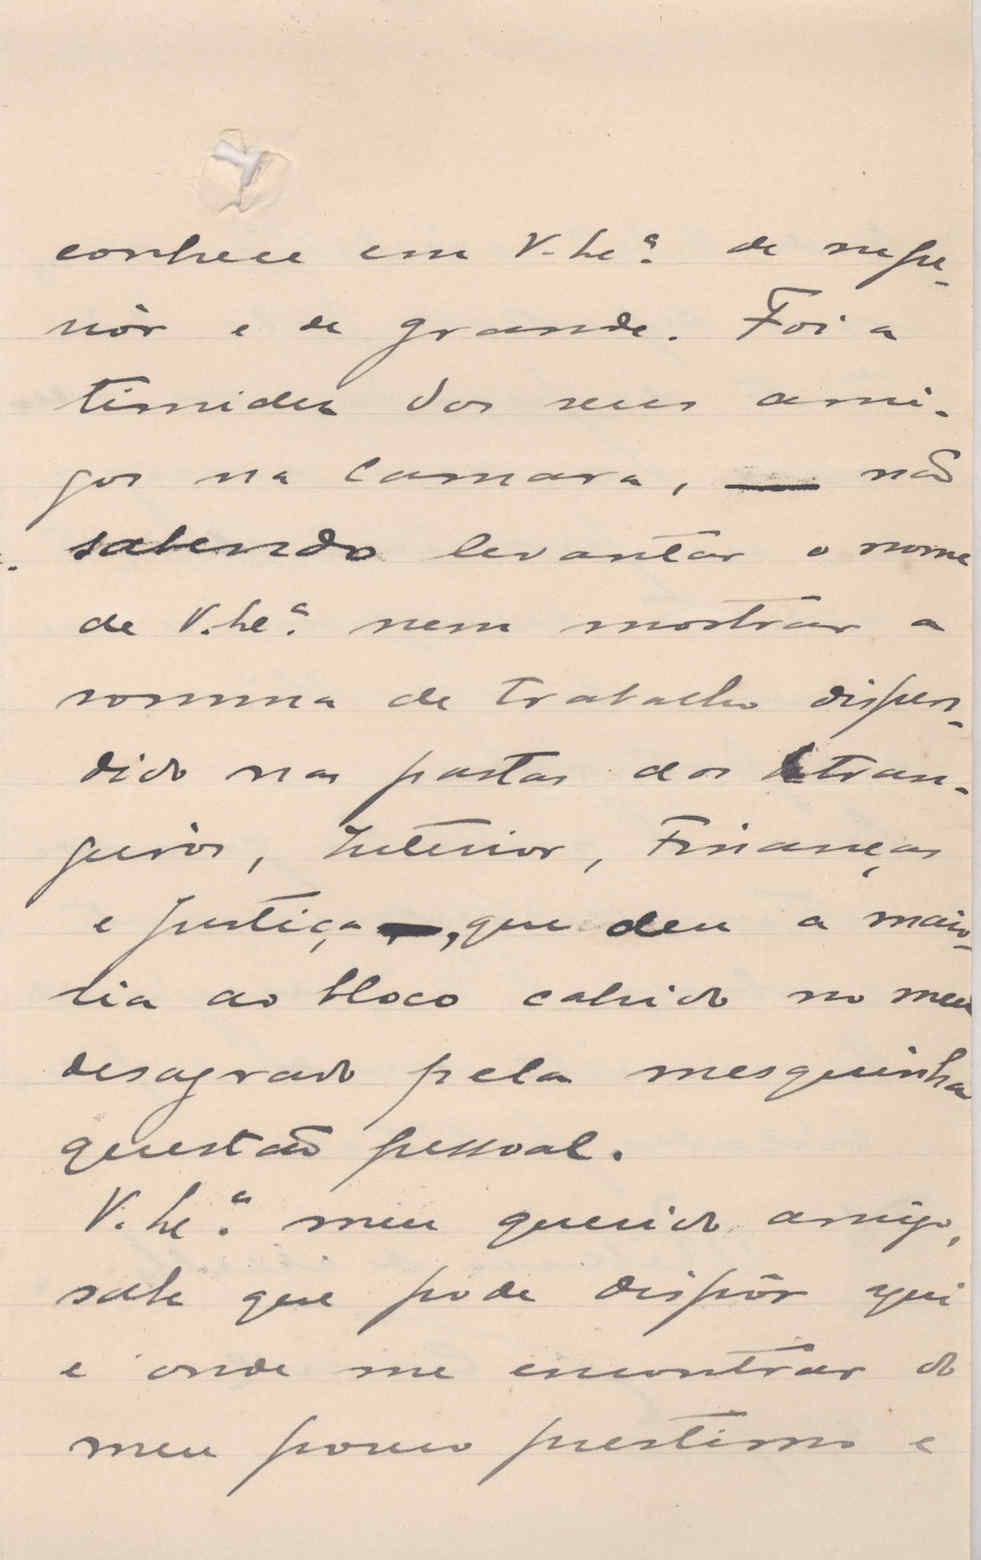 conhece em V. Exª. de supe-
riòr e de grande. Foi a
timidez dos seus ami-
gos na Camara, — não
sabendo levantar o nome
de V. Exª. nem mostrar a
somma de trabalho dispen-
dido nas pastas dos Estran-
geiros, Interior, Finanças
e Justiça —, que deu a maio-
ria ao bloco cahido no meu
desagrado pela mesquinha
questão pessoal.
V. Exª. meu querido amigo,
sabe que pode dispôr aqui
e onde me encontrar do
meu pouco prestimo e